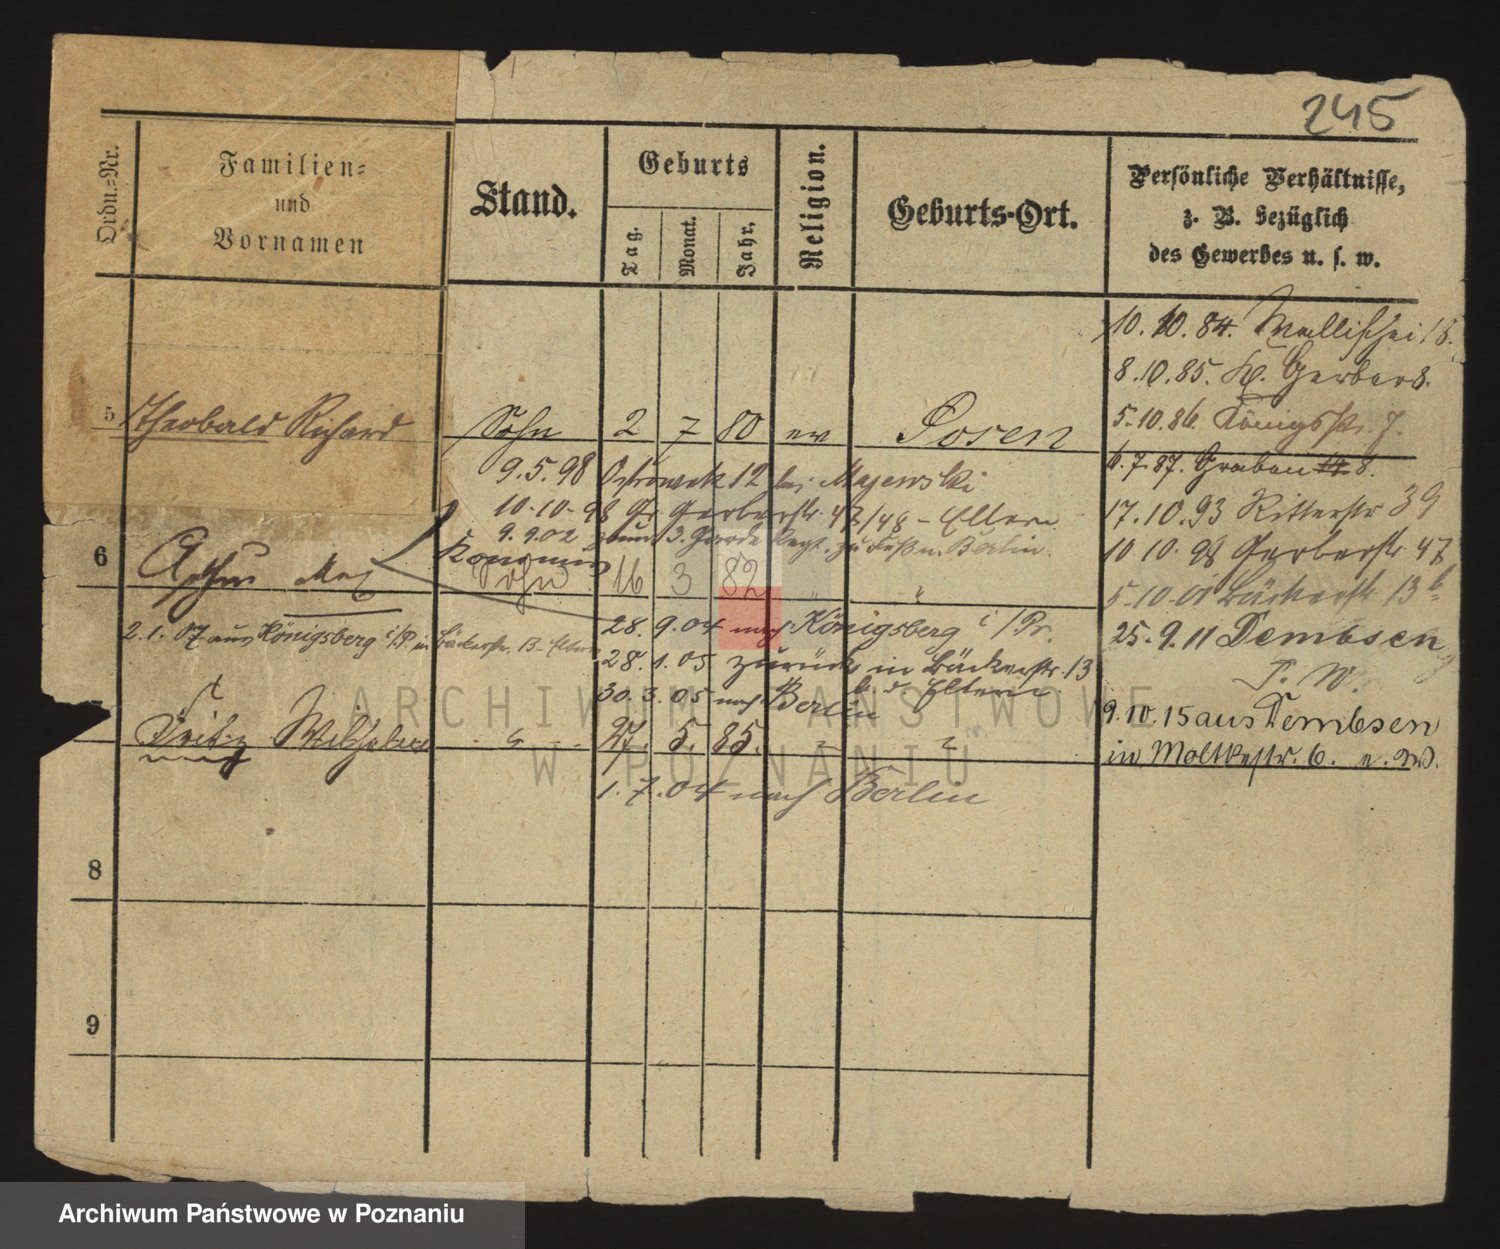 245
Ordn.-Nr.
Familien-
und
Vornamen
Stand.
Geburts
Tag.
Monat.
Jahr.
Religion.
Geburts-Ort.
Persönliche Verhältnisse,
z. B. bezüglich
des Gewerbes u. s. w.
10.10.84. Wallischei
8.10.85. Gerber 8.
5 Theobald Richard Sohn 2 7 80 ev Posen
5.10.86. Königsstr. 7.
9.5.98 Ostrowek 12 bei Majewski
6.7.87. Graben 8.
10.10.98 Gr. Gerberstr. 47/48 - Eltern
17.10.93 Ritterstr 39
9.9.02 zum 3. Garde Regt. zu Fuß n. Berlin.
10 10. 98 Gerberstr 47
6 Arthur Max Sohn 16 3 82 " "
5.10.01 Bäckerstr 13
28. 9.04 nach Königsberg i/Pr.
2.1.07 aus Königsberg i/P. in Bäckerstr. 13 Eltern
25.9.11 Dembsen
28.1.05 zurück in Bäckerstr. 13
b. d. Eltern
P. W.
30.3.05 nach Berlin
9.10.15 aus Dembsen
Fritz Wilhelm " 27. 5. 85. " "
in Moltkestr. 6.
1.7.04 nach Berlin
8
9
ARCHIWUM PAŃSTWOWE
W POZNANIU
Archiwum Państwowe w Poznaniu